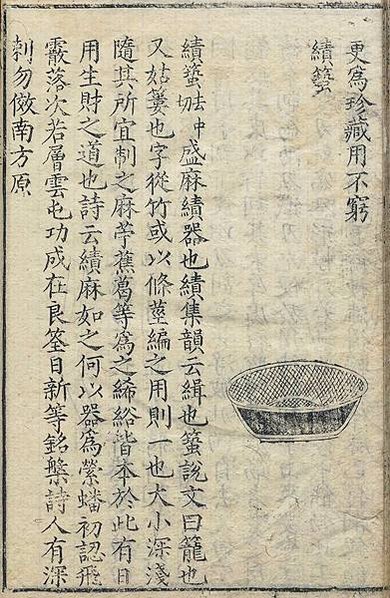 更為珍藏用不窮
績
績 盛麻績器也績集韻云緝也 說文曰籠也
又姑簍也字從竹或以條莖編之用則一也大小深淺
隨其所宜制之麻苧蕉葛等為之絺綌皆本於此有日
用生財之道也詩云績麻如之何以器為縈蟠初認飛
霰落次若層雲屯功成在良筌日新等銘槃詩人有深
刺勿倣南方原